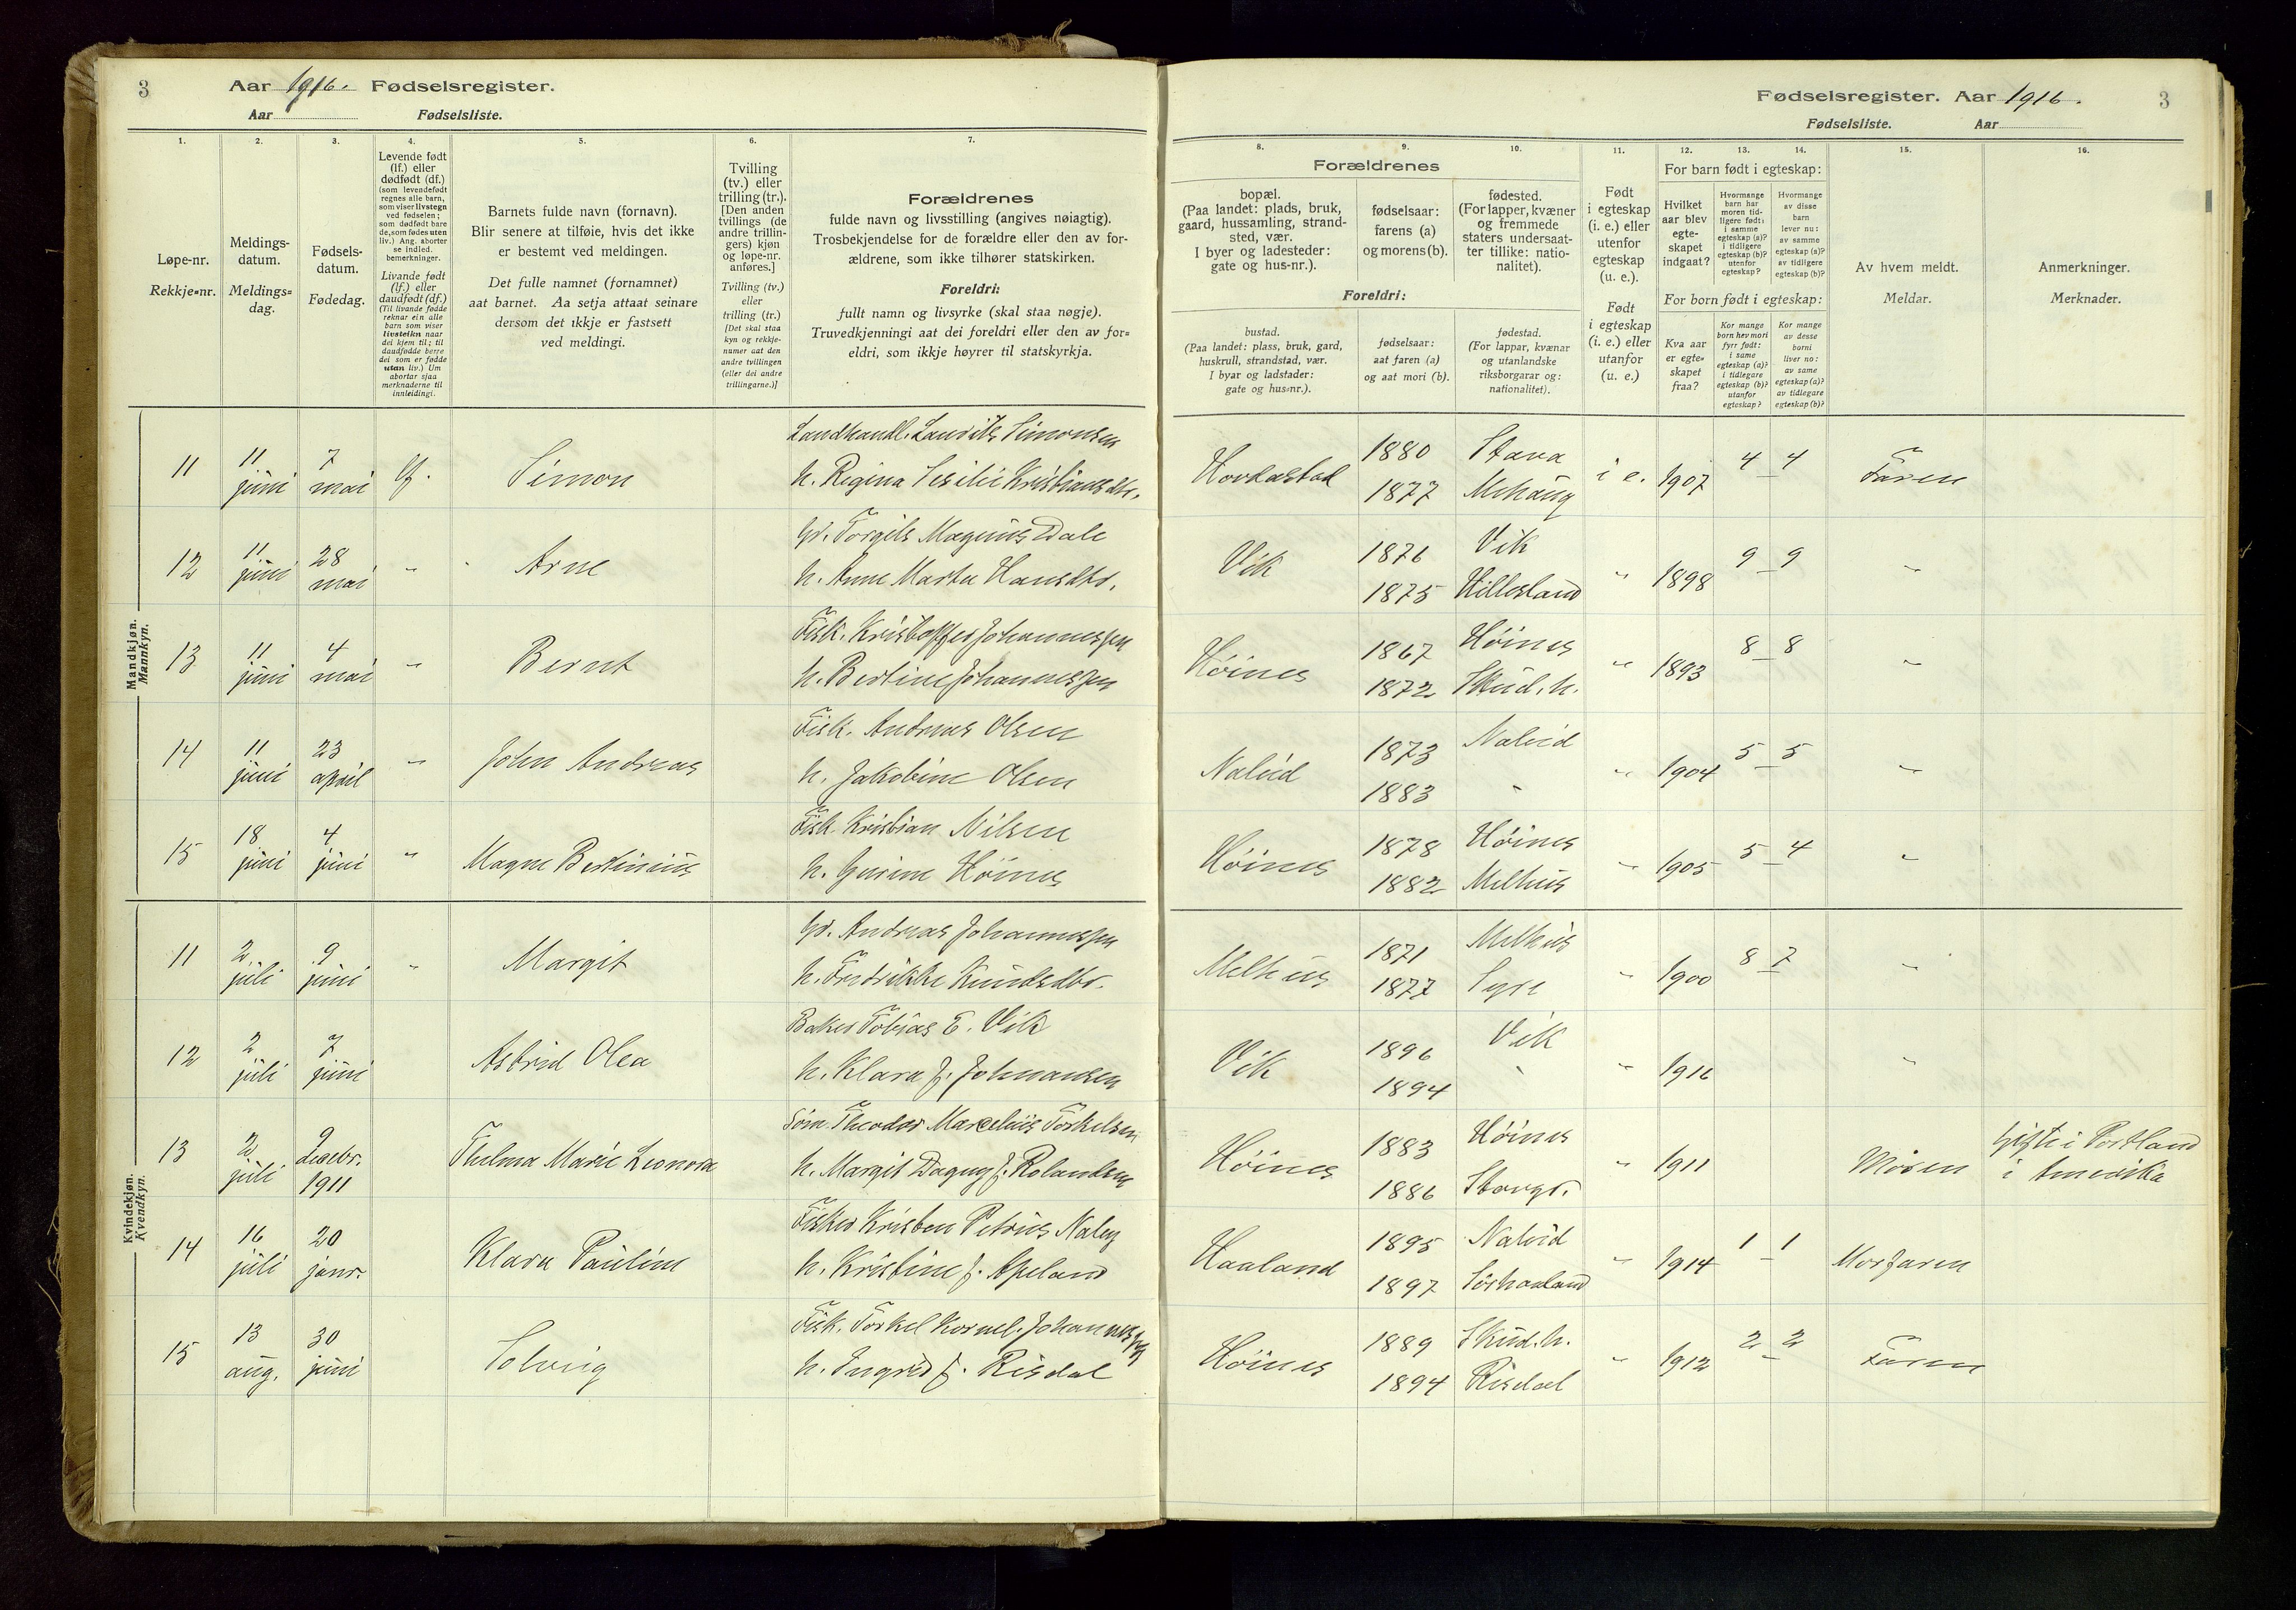 3
Aar 1916. Fødselsregister.
Aar Fødselsliste.
1.
2.
3.
4.
5.
6.
7.
Løpe-nr.
Rekkje=nr.
Meldings-
datum.
Meldings=
dag.
Fødsels-
datum.
Fødedag.
Levende født
(lf.) eller
dødfødt (df.)
(som levendefødt
regnes alle barn,
som viser livstegn
ved fødselen;
som dødfødt bare
de, som fødes uten
liv.) Ang. aborter
se indled.
bemerkninger.
Livande født
(lf.) eller
daudfødt (df.)
(Til livande fødde
reknar ein alle
barn som viser
livsteikn naar
dei kjem til; til
daudfødde berre
dei som er fødde
utan liv.) Um
abortar sjaa
merknaderne til
innleidingi.
Barnets fulde navn (fornavn).
Blir senere at tilføie, hvis det ikke
er bestemt ved meldingen.
Det fulle namnet (fornamnet)
aat barnet. Aa setja attaat seinare
dersom det ikkje er fastsett
ved meldingi.
Tvilling
(tv.) eller
trilling (tr.).
[Den anden
tvillings (de
andre trillin-
gers) kjøn
og løpe-nr.
anføres.]
Tvilling (tv.)
eller
trilling (tr.)
[Det skal staa
kyn og rekkje-
numer aat den
andre tvillingen
(eller dei andre
trillingarne.)]
Forældrenes
fulde navn og livsstilling (angives nøiagtig).
Trosbekjendelse for de forældre eller den av for-
ældrene, som ikke tilhører statskirken.
Foreldri:
fullt namn og livsyrke (skal staa nøgje).
Truvedkjenningi aat dei foreldri eller den av for=
eldri, som ikkje høyrer til statskyrkja.
Fødselsregister. Aar 1916.
3
Fødselsliste. Aar
8.
9.
10.
11.
12.
13.
14.
15.
16.
Forældrenes
bopæl.
(Paa landet: plads, bruk,
gaard, hussamling, strand-
sted, vær.
I byer og ladesteder:
gate og hus-nr.).
fødselsaar:
farens (a)
og morens (b).
fødested.
(For lapper, kvæner
og fremmede
staters undersaat-
ter tillike: natio-
nalitet).
Foreldri:
bustad.
(Paa landet: plass, bruk, gard,
huskrull, strandstad, vær.
I byar og ladstader:
gate og hus=nr.).
fødselsaar:
aat faren (a)
og aat mori (b).
fødestad.
(For lappar, kvænar
og utanlandske
riksborgarar og:
nationalitet).
Født
i egteskap
(i. e.) eller
utenfor
egteskap
(u. e.).
Født
i egteskap
(i. e.) eller
utanfor
(u. e.)
For barn født i egteskap:
Hvilket
aar blev
egte-
skapet
indgaat?
Hvormange
barn har
moren tid-
ligere født:
i samme
egteskap (a)?
i tidligere
egteskap (b)?
utenfor
egteskap?
Hvormange
av disse
barn
lever nu:
av samme
egteskap (a)?
av tidligere
egteskap (b)?
For born født i egteskap:
Kva aar
er egte=
skapet
fraa?
Kor mange
born hev mori
fyrr født:
i same
egteskap (a)?
i tidlegare
egteskap (b)?
utanfor
egteskap?
Kor mange
av desse
borni
liver no:
av same
egteskap (a)?
av tidlegare
egteskap (b)?
Av hvem meldt.
Meldar.
Anmerkninger.
Merknader.
Mandkjøn.
Mannkyn.
11 11 juni 7 mai lf. Simon Landhandl. Laurits Simonsen
h. Regina Sesilie Kristiansdtr. 1880 1877 Stava i e. 1907 4 - 4 Faren
12 11 juni 28 mai " Arne Gr. Torgils Magnus Dale
h. Anne Marta Hansdtr. Vik 1876 1875 Vik Hillesland " 1898 9 - 9 "
13 11 juni 4 mai " Bernt Fisk. Kristoffer Johannessen
h. Bertine Johannessen Høines 1867 1872 Høines Skud.h. " 1893 8 - 8 "
14 11 juni 23 april " John Andreas Fisk. Andreas Olsen
h. Jakobine Olsen Nalvid 1873 1883 Nalvid " " 1904 5 - 5 "
15 18 juni 4 juni " Magne Bertinius Fisk. Kristian Nilsen
h. Høines Høines 1878 1882 Høines Melhus " 1905 5 - 4 "
Kvindekjøn.
Kvendkyn.
11 2 juli 9 juni " Margit Gr. Andreas Johannessen
h. Fredrikke Knudsdtr. Melhus 1871 1877 Melhus Syre " 1900 8 - 7 "
12 2 juli 7 juni Astrid Olea Baker Tobias E. Vik
h. Klara f. Johnansen Vik 1896 1894 Vik " " 1916 "
13 2 juli 9 Desebr. 1911 Thelma Marie Leonora Søm. Theodor Marcelius Torkelsen
h. Margit Dagny f. Rolandsen Høines 1883 1886 Høines Stavgr. " 1911 Moren Gifte i Portland
i Amerika
14 16 juli 20 janr. Klara Pauline Fisker Kristen Petrus
h. Kristine f. Apeland Haaland 1895 1897 Nalvid Sørhaaland " 1914 1 - 1 Morfaren
15 13 aug. 30 juni Solveig Fisk. Torkel Kornel. Johannessen
h. Ingrid f. Risdal Høines 1889 1894 Skud.h. Risdal " 1912 2 - 2 Faren